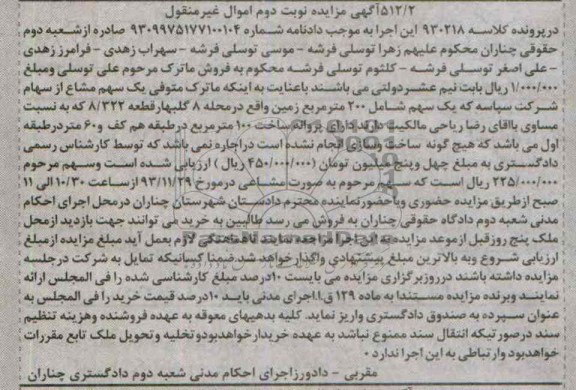 ۵۱۲/۲ آگهی مزایده نوبت دوم اموال غیرمنقول
درپرونده کلاسه ۹۳۰۲۱۸ این اجرا به موجب دادنامه شماره ۹۳۰۹۹۷۵۱۷۷۱۰۰۱۰۴ صادره ازشعبه دوم
حقوقی چناران محکوم علیهم زهرا توسلی فرشه - موسی توسلی فرشه - سهراب زهدی - فرامرز زهدی
- علی اصغر توسلی فرشه - کلثوم توسلی فرشه محکوم به فروش ماترک مرحوم علی توسلی ومبلغ
۱/۰۰۰/۰۰۰ ریال بابت نیم عشردولتی می باشند باعنایت به اینکه ماترک متوفی یک سهم مشاع از سهام
شرکت سپاسه که یک سهم شامل ۲۰۰ مترمربع زمین واقع درمحله ۸ گلبهارقطعه ۸/۳۲۲ که به نسبت
مساوی باآقای رضا ریاحی مالکیت دارند دارای پروانه ساخت ۱۰۰ مترمربع درطبقه هم کف و۶۰ متردرطبقه
اول می باشد که هیچ گونه ساخت وسازی انجام نشده است دراجاره نمی باشد که توسط کارشناس رسمی
دادگستری به مبلغ چهل وپنج میلیون تومان (۴۵۰/۰۰۰/۰۰۰ ریال) ارزیابی شده است وسهم مرحوم
۲۲۵/۰۰۰/۰۰۰ ریال است که سهم مرحوم به صورت مشاعی درمورخ ۹۳/۱۱/۲۹ ازساعت ۱۰/۳۰ الی ۱۱
صبح ازطریق مزایده حضوری وباحضورنماینده محترم دادستان شهرستان چناران درمحل اجرای احکام
مدنی شعبه دوم دادگاه حقوقی چناران به فروش می رسد طالبین به خرید می توانند جهت بازدید ازمحل
ملک پنج روزقبل ازموعد مزایده به این اجرا مراجعه نمایند تاهماهنگی لازم بعمل آید مبلغ مزایده ازمبلغ
ارزیابی شروع وبه بالاترین مبلغ پیشنهادی واگذارخواهد شد.ضمنا کسانیکه تمایل به شرکت درجلسه
مزایده داشته باشند درروزبرگزاری مزایده می بایست ۱۰درصد مبلغ کارشناسی شده را فی المجلس ارائه
نمایند وبرنده مزایده مستندا به ماده ۱۲۹ ق.ا.اجرای مدنی باید ۱۰درصد قیمت خرید را فی المجلس به
عنوان سپرده به صندوق دادگستری واریز نماید. کلیه بدهیهای معوقه به عهده فروشنده وهزینه تنظیم
سند درصورتیکه انتقال سند ممنوع نباشد به عهده خریدارخواهدبودوتخلیه وتحویل ملک تابع مقررات
خواهدبود وارتباطی به این اجرا ندارد.
مقربی - دادورزاجرای احکام مدنی شعبه دوم دادگستری چناران